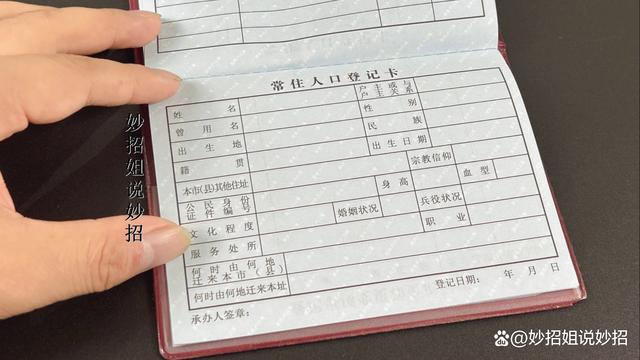 常住人口登记卡
姓名 户主或与户主关系
曾用名 性别
出生地 民族
籍贯 出生日期
本市(县)其他住址 宗教信仰
公民身份证件编号 身高 血型
文化程度 婚姻状况 兵役状况
服务处所 职业
何时由何地迁来本市(县)
何时由何地迁来本址
承办人签章: 登记日期: 年 月 日
妙招姐说妙招
妙招姐说妙招